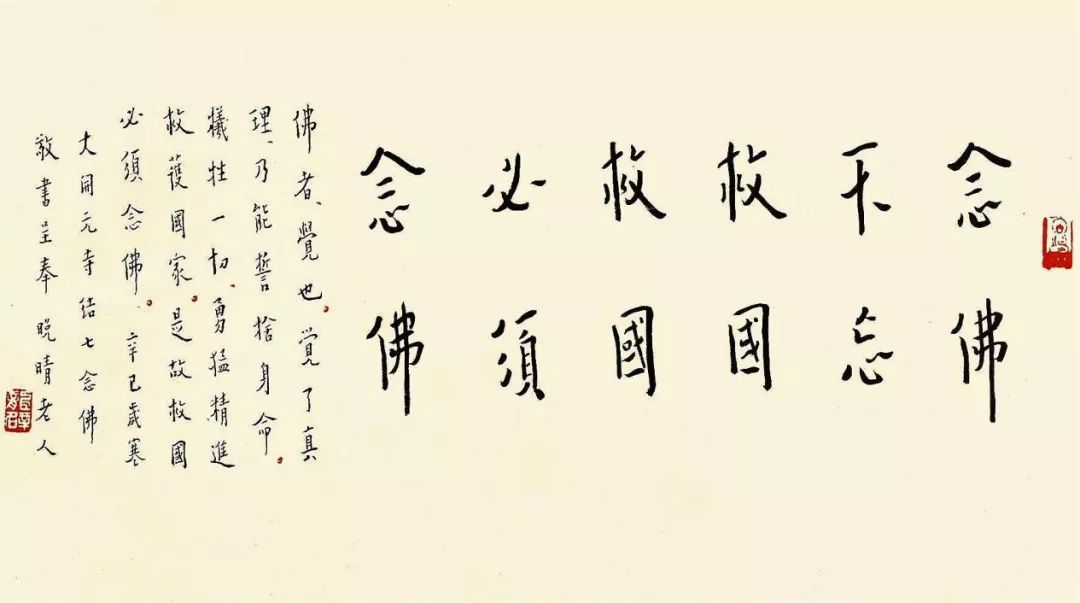 念佛
不忘
救國
救國
必須
念佛
佛者、覺也。覺了真
理、乃能誓捨身命。
犧牲一切、勇猛精進
救護國家。是故救國
必須念佛。辛巳歲寒
大開元寺結七念佛
敬書呈奉晚晴老人